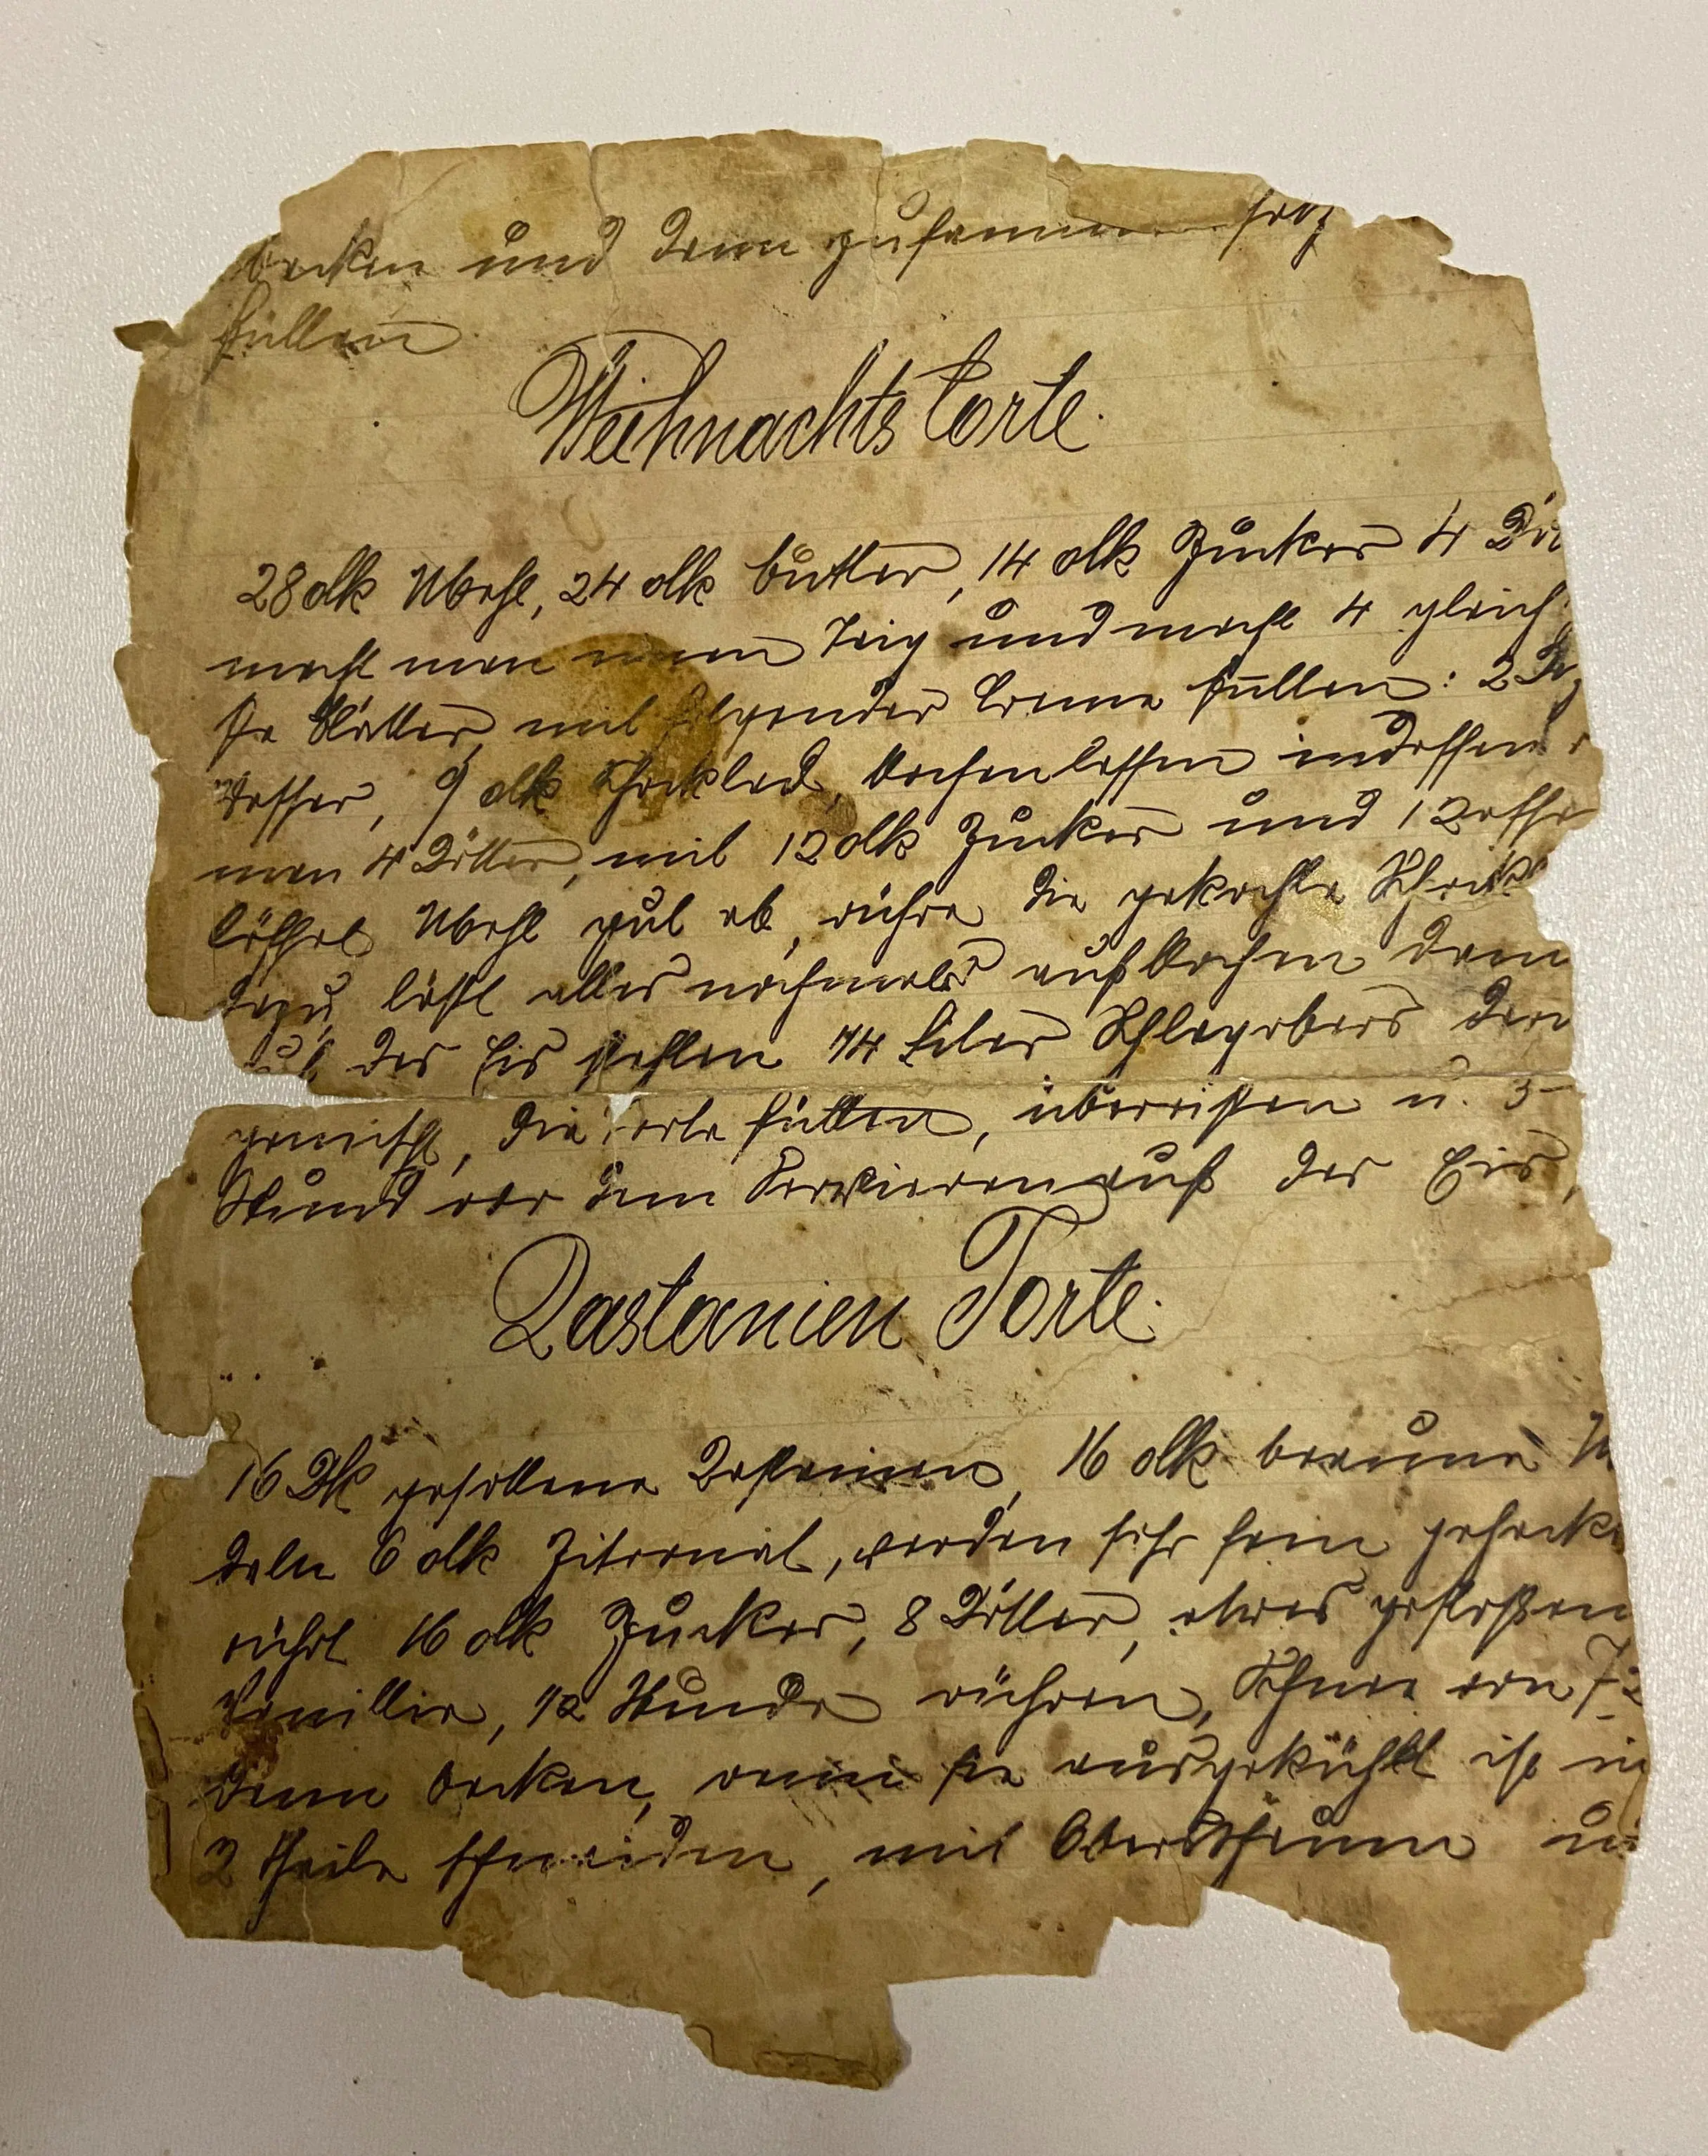 backen und dann zusammen
füllen
Weihnachts torte.
28 dk Mehl, 24 dk butter, 14 dk Zucker 4
macht man einen Teig und macht 4 gleich
ße blätter, mit folgender Creme füllen: 2
Wasser, 9 dk Schoklad, kochen lassen indessen
man 4 Dötter, mit 12 dk Zucker und 1
löffel Mehl gut ab, rühre die gekochte Schok
dazu, läßt alles nochmals aufkochen dann
auf das Eis stehlen 1/4 Liter Schlagobers
gemischt, die Torte füllen, übereisen u. 3
Stund vor dem Servieren auf das Eis,
Kastanien Torte.
16 Dk gesottene Kastanien, 16 dk braune
deln 6 dk Zitronat, werden sehr fein gehackt
rührt 16 dk Zucker, 8 Dötter, etwas gestoßen
Vanillie, 1/2 Stunde rühren, Schnee von 7
dann backen, wenn sie ausgekühlt ist in
2 theile schneiden, mit Obersschaum